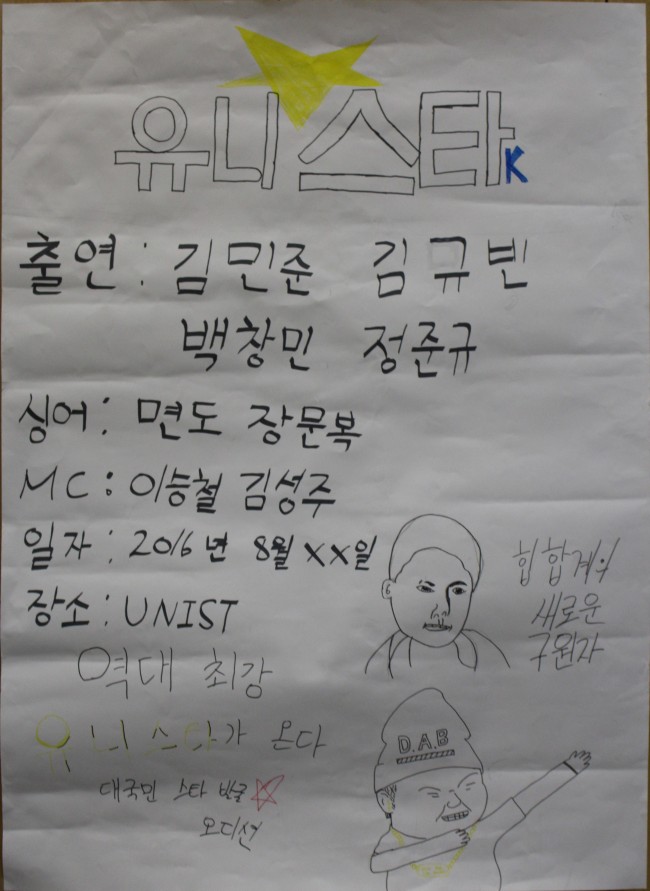 유니스타K
출연: 김민준 김규빈
백창민 정준규
싱어: 면도 장문복
MC: 이승철 김성주
일자: 2016년 8월 XX일
장소: UNIST
힙합계의
새로운
구원자
역대 최강
유니스타가 온다
D.A.B
대국민 스타 발굴
오디션